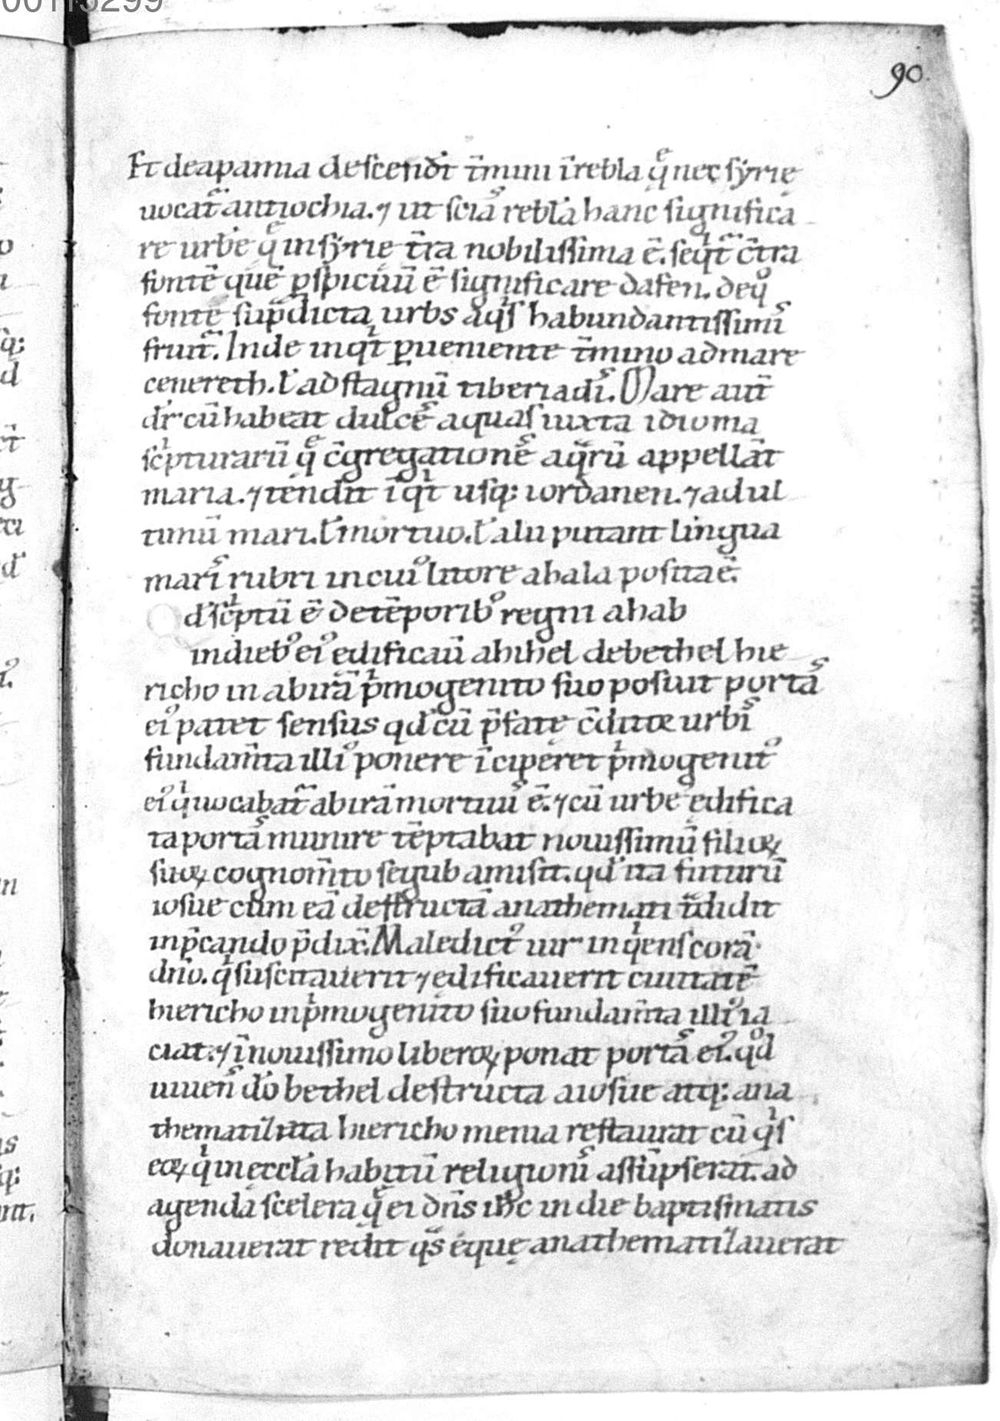 00115299
90.
Et de apamia descendt̃ t̃mini ĩ rebla q̃ nec syrię
uocat̃ antiochia. ⁊ ut sciãs reblã hanc significa
re urbẽ q̃ in syrię t̃ra nobilissima ẽ. seqt̃ c̃tra
fontẽ quẽ p̱spicuũ ẽ significare dafen. de q̊
fonte sup̃dicta urbs aq̃s habundantissimis
fruit̃. Inde inqt̃ p̱ueniente t̃mino ad mare
cenereth. ł ad stagnũ tiberiadis. Mare aut̃
dr̃ cũ habeat dulces aquas iuxta idioma
sc̃pturarũ q̃ c̃gregationẽs aq̃rũ appellãt
maria. ⁊ tendit ĩqt̃ usq; iordanen. ⁊ ad ul
timũ mari. ł mortuo. ł alii putant lingua
maris rubri in cuiꝰ litore ahala posita ẽ.
d' sc̃ptũ ẽ de tẽporibꝰ regni ahab
in diebꝰ eiꝰ edificaũ ahihel de bethel hie
richo in abirã p̃mogenito suo posuit portãs
eiꝰ patet sensus qd' cũ p̃fatę c̃ditor urbis
fundam̃ta illiꝰ ponere ĩciperet p̃mogenitꝰ
eiꝰ q̃ uocabat̃ abirã mortuus ẽ. ⁊ cũ urbẽ edifica
ta portãs munire tẽptabat nouissimũ filioꝝ
suoꝝ cognom̃to segub amisit. qd' ita futurũ
iosue cum eã destructã anathemati t̃didit
inp̃cando p̃dix̃. Maledictꝰ uir inq̃ens corã
dño. q̃ suscitauerit ⁊ edificauerit ciuitatẽ
hiericho in p̃mogenito suo fundam̃ta illiꝰ ia
ciat. ⁊ ĩ nouissimo liberoꝝ ponat portãs eiꝰ. qd̊
uueñs do bethel destructa a iosue atq; ana
thematiz̃ata hiericho menia restaurat cũ q̃s
eoꝝ q̃ in ecclã habitũ religionis assũpserat. ad
agenda scelera q̃ ei dñs ihc̃ in die baptismatis
donauerat redit q̃s eq̃uę anathematizauerat